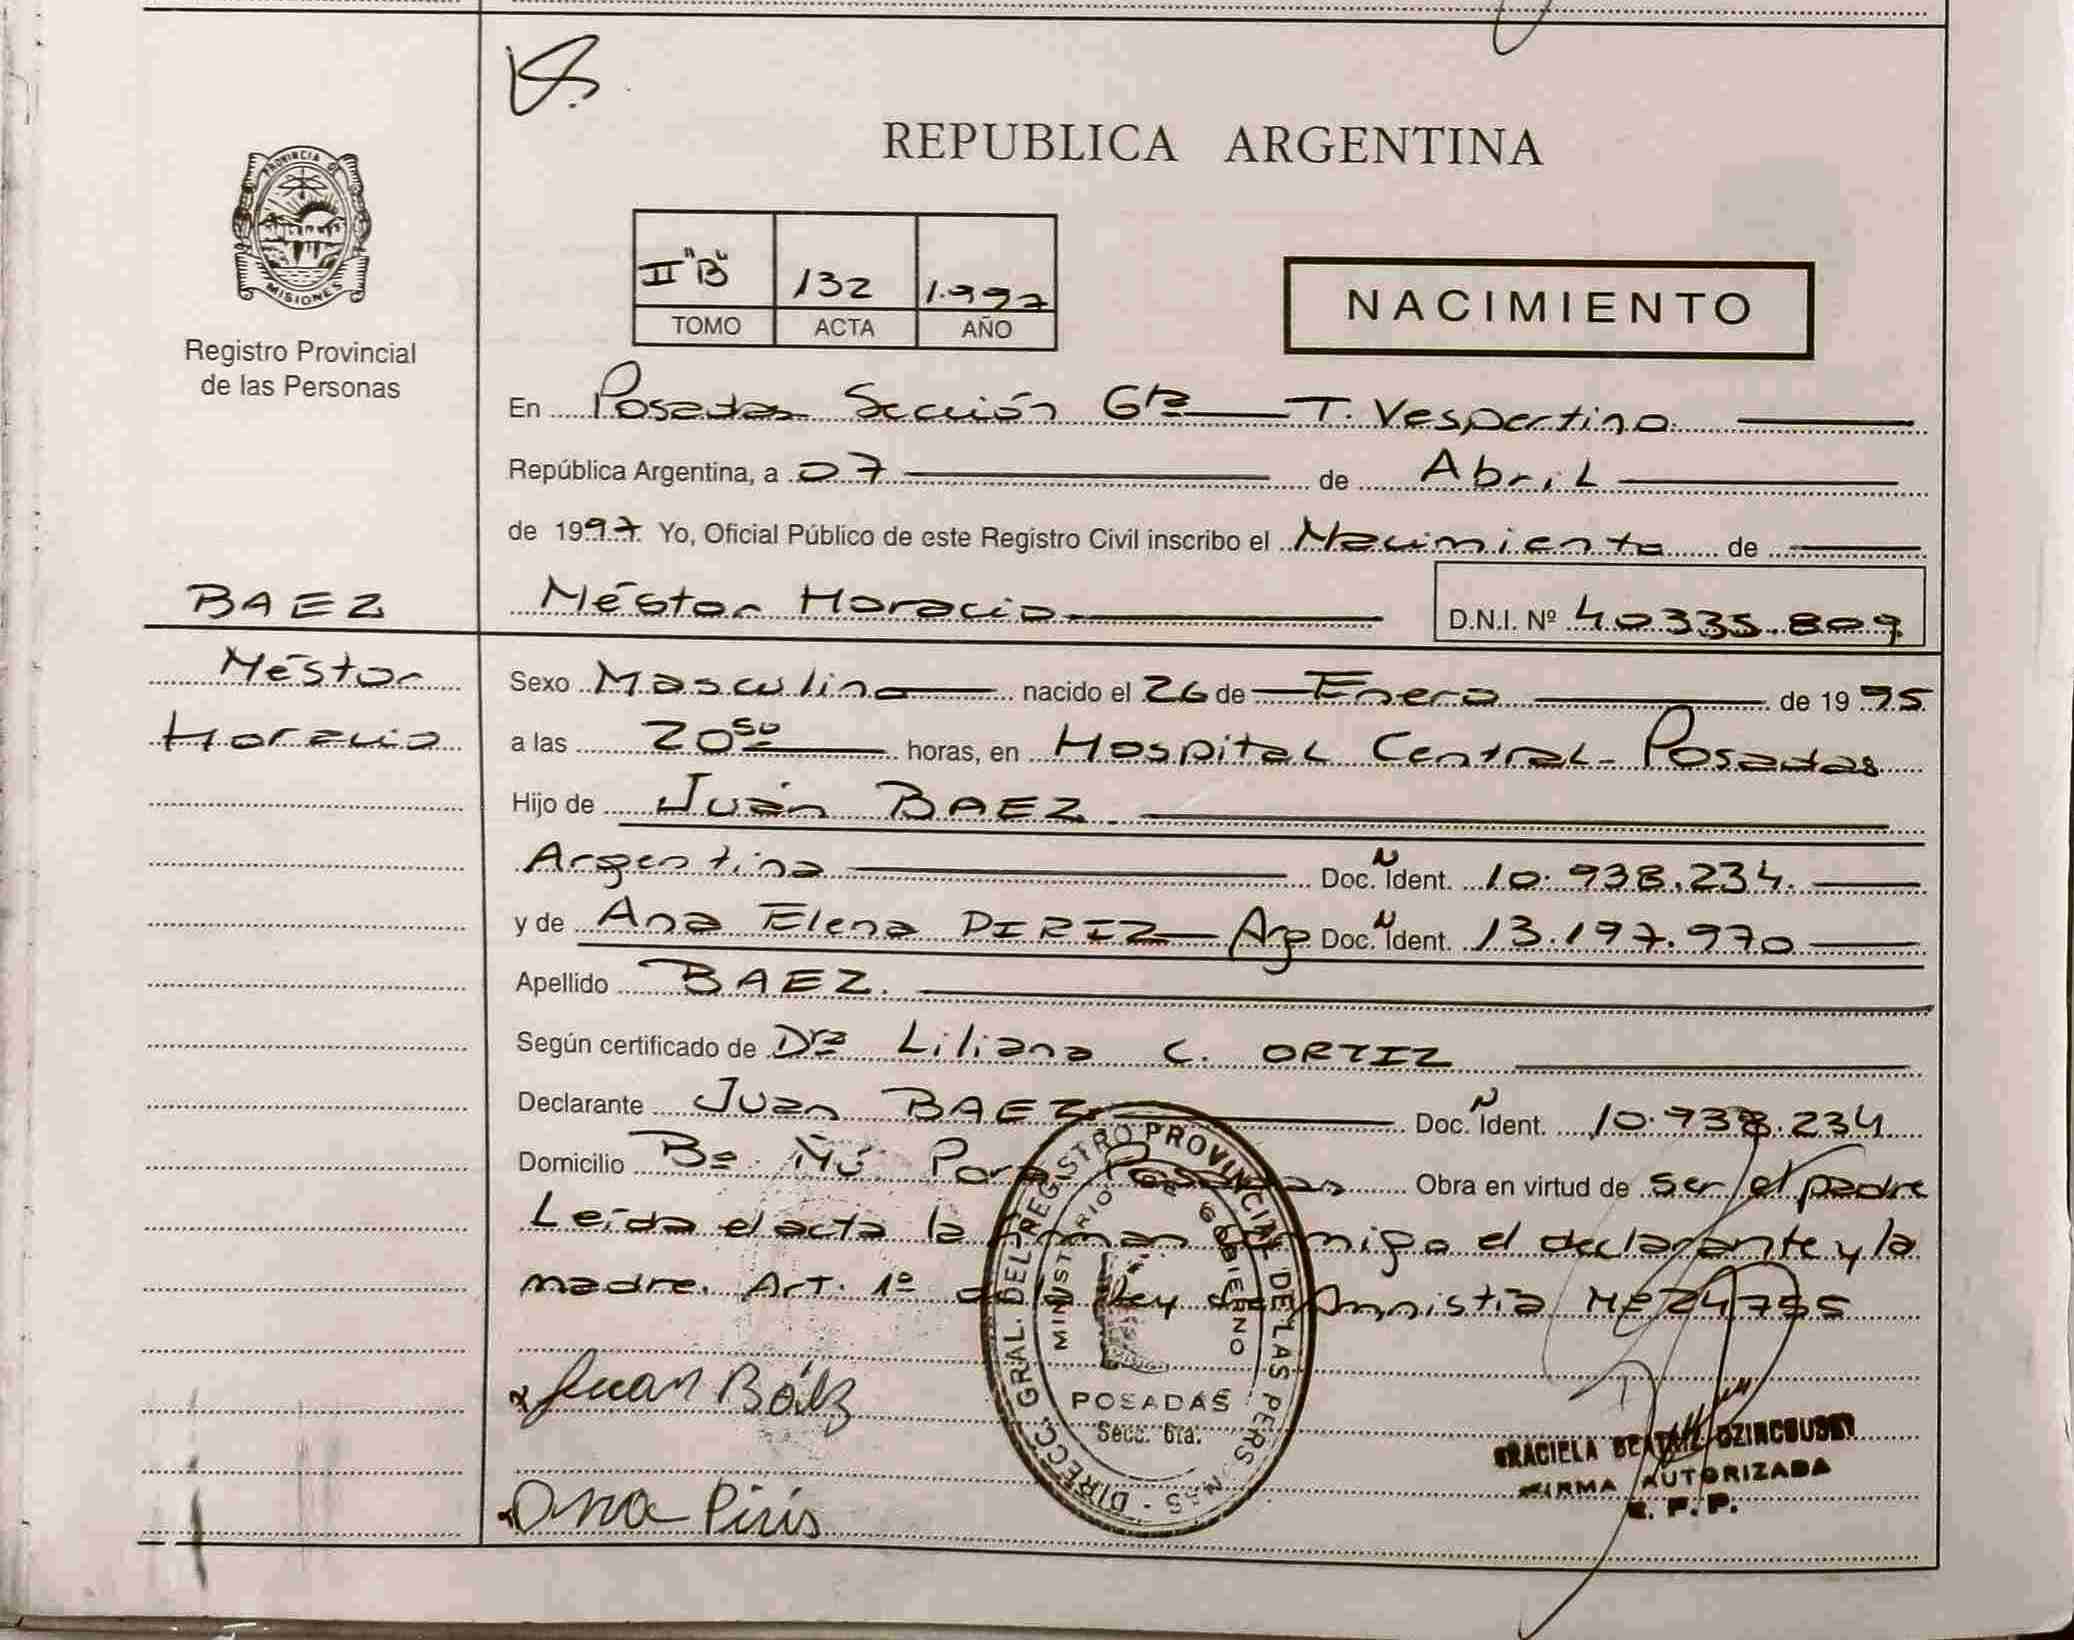 REPUBLICA ARGENTINA
PROVINCIA DE
MISIONES
Registro Provincial
de las Personas
II "B" 132 1.997
TOMO ACTA AÑO
NACIMIENTO
En Posadas Sección 6ta T. Vespertino
República Argentina, a 07 de Abril
de 1997 Yo, Oficial Público de este Registro Civil inscribo el Nacimiento de
BAEZ
Néstor Horacio D.N.I. Nº 40335.809
Néstor
Horacio
Sexo Masculino nacido el 26 de Enero de 1995
a las 20 50 horas, en Hospital Central - Posadas
Hijo de Juan BAEZ
Argentina Doc. N Ident. 10.938.234.
y de Ana Elena PIRIZ Arg Doc. N Ident. 13.197.970
Apellido BAEZ.
Según certificado de Dra Liliana C. ORTIZ
Declarante Juan BAEZ Doc. N Ident. 10.938.234
Domicilio Bº Ñú Porá Posadas Obra en virtud de ser el padre
Leída el acta la firman conmigo el declarante y la
madre. Art. 1º de la Ley de Amnistía Nº 24755
Juan Báez
Ana Piris
DIRECC. GRAL. DEL REGISTRO PROVINCIAL DE LAS PERSONAS
MINISTERIO DE GOBIERNO
POSADAS
Secc. 6ta.
GRACIELA BEATRIZ
FIRMA AUTORIZADA
R. P. P.